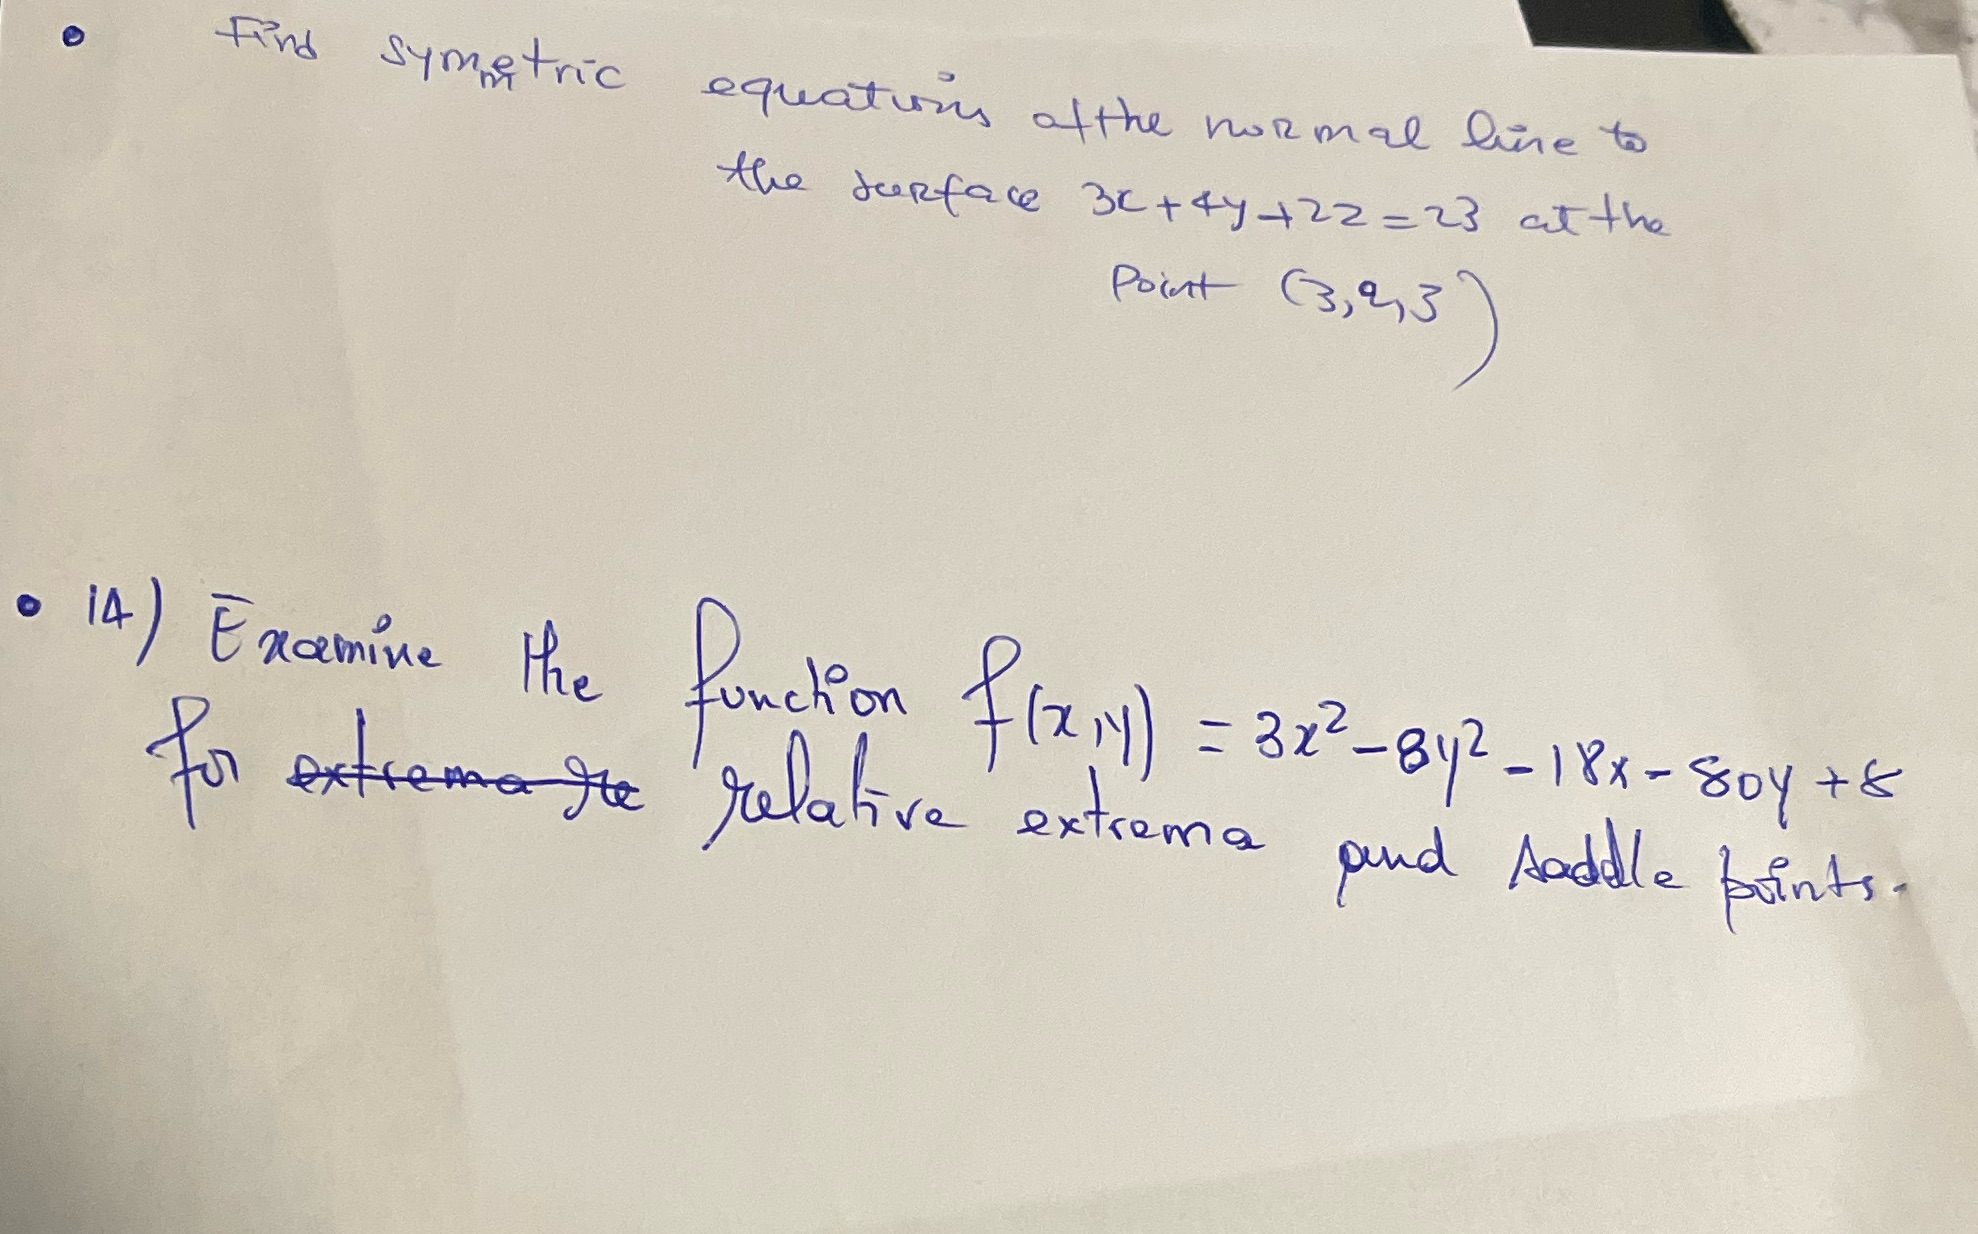 • Find symmetric equations of the normal line to
the surface 3x+4y+2z=23 at the
Point (3,2,3)
• 14) Examine the function f(x,y) = 3x²-8y²-18x-80y+8
for relative extrema and saddle points.